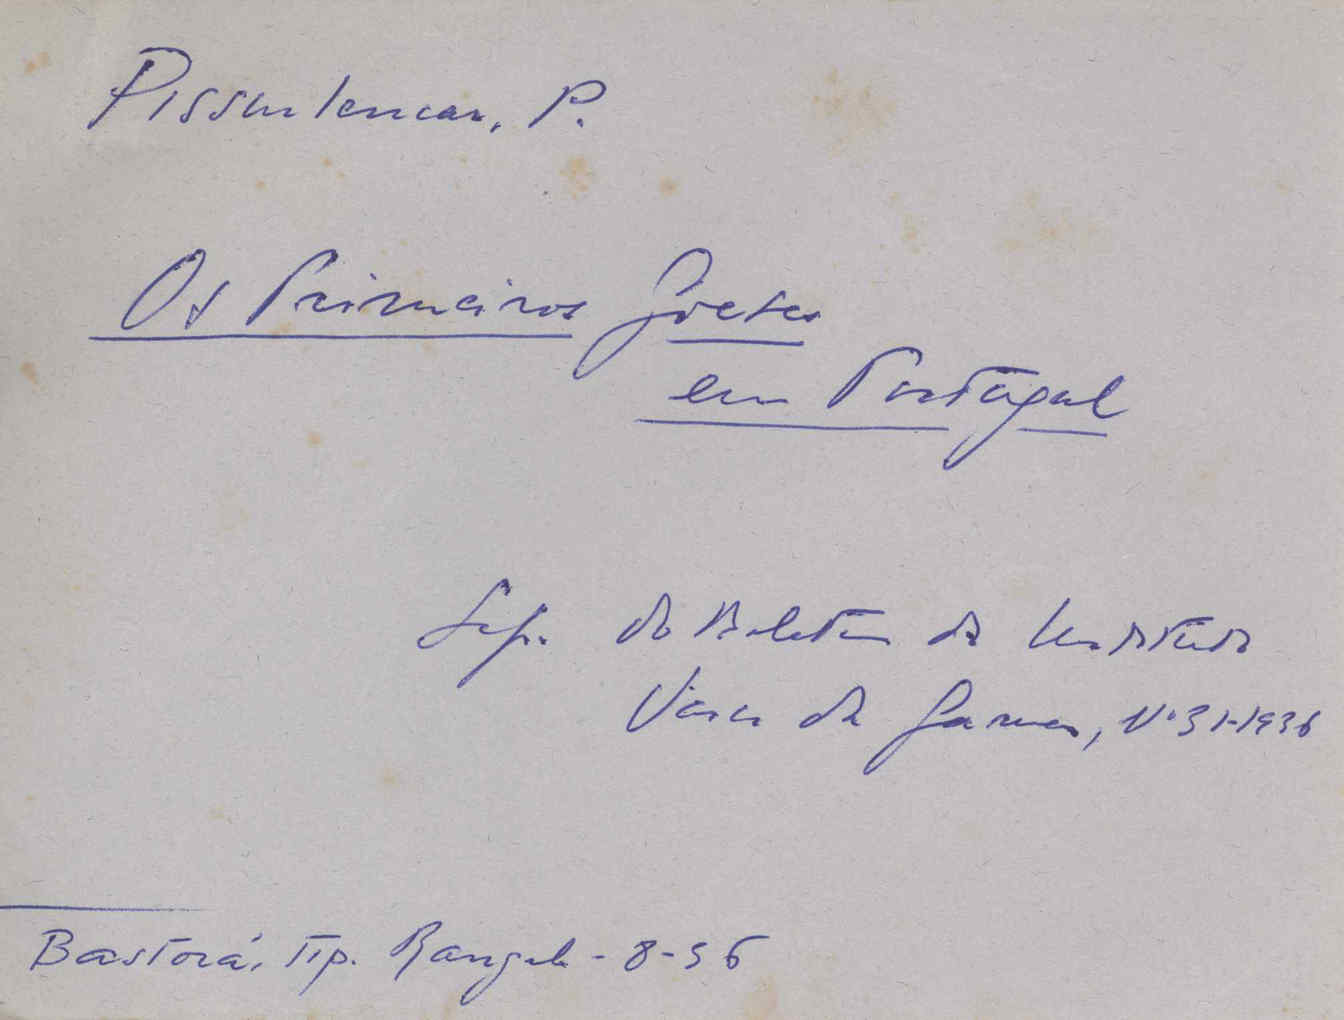 Pissurlencar, P.
Os Primeiros Goeses
em Portugal
Sep. do Boletim do Instituto
Vasco da Gama, Nº 31-1936
Bastorá, Tip. Rangel - 8-36